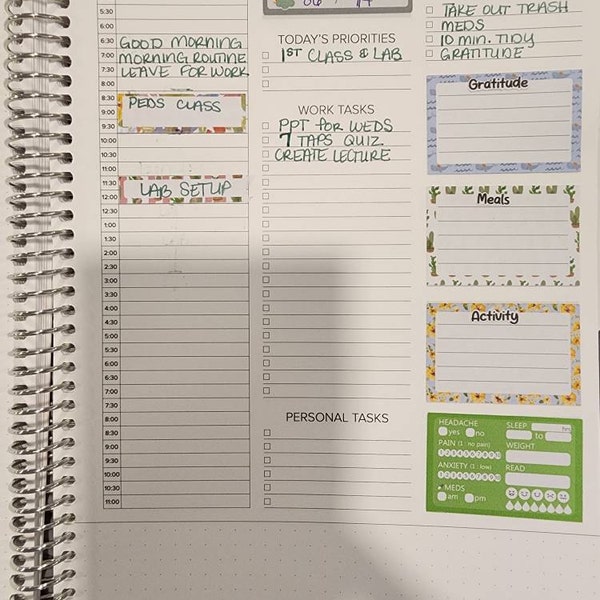 5:30
6:00
6:30 GOOD MORNING
7:00 MORNING ROUTINE
7:30 LEAVE FOR WORK
8:00
8:30 PEDS CLASS
9:00
9:30
10:00
10:30
11:00
11:30 LAB SETUP
12:00
12:30
1:00
1:30
2:00
2:30
3:00
3:30
4:00
4:30
5:00
5:30
6:00
6:30
7:00
7:30
8:00
8:30
9:00
9:30
10:00
10:30
11:00
TODAY'S PRIORITIES
1ST CLASS & LAB
WORK TASKS
PPT for WEDS
7 TAPS QUIZ
CREATE LECTURE
PERSONAL TASKS
TAKE OUT TRASH
MEDS
10 min. TIDY
GRATITUDE
Gratitude
Meals
Activity
HEADACHE
yes no
PAIN (1 : no pain)
1 2 3 4 5 6 7 8 9 10
ANXIETY (1 : low)
1 2 3 4 5 6 7 8 9 10
MEDS
am pm
SLEEP hrs
to
WEIGHT
READ